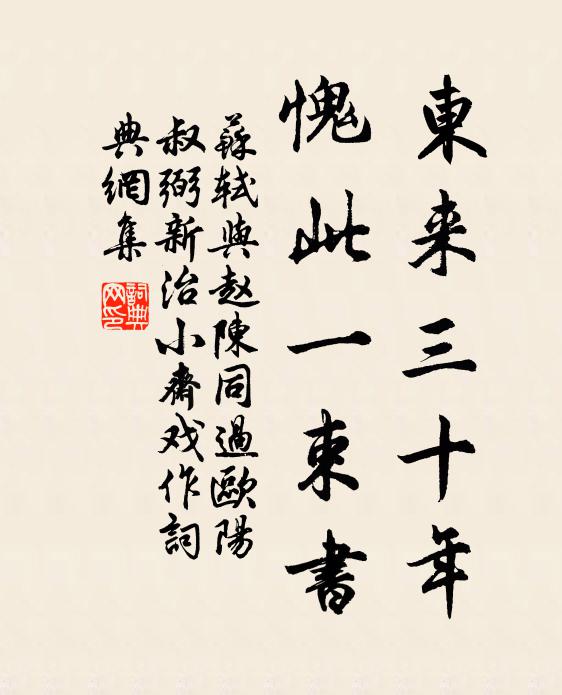 東来三十年
愧此一束書
蘇軾與赵陳同過歐陽
叔弼新治小齋戏作詞
典網集
詞典网印